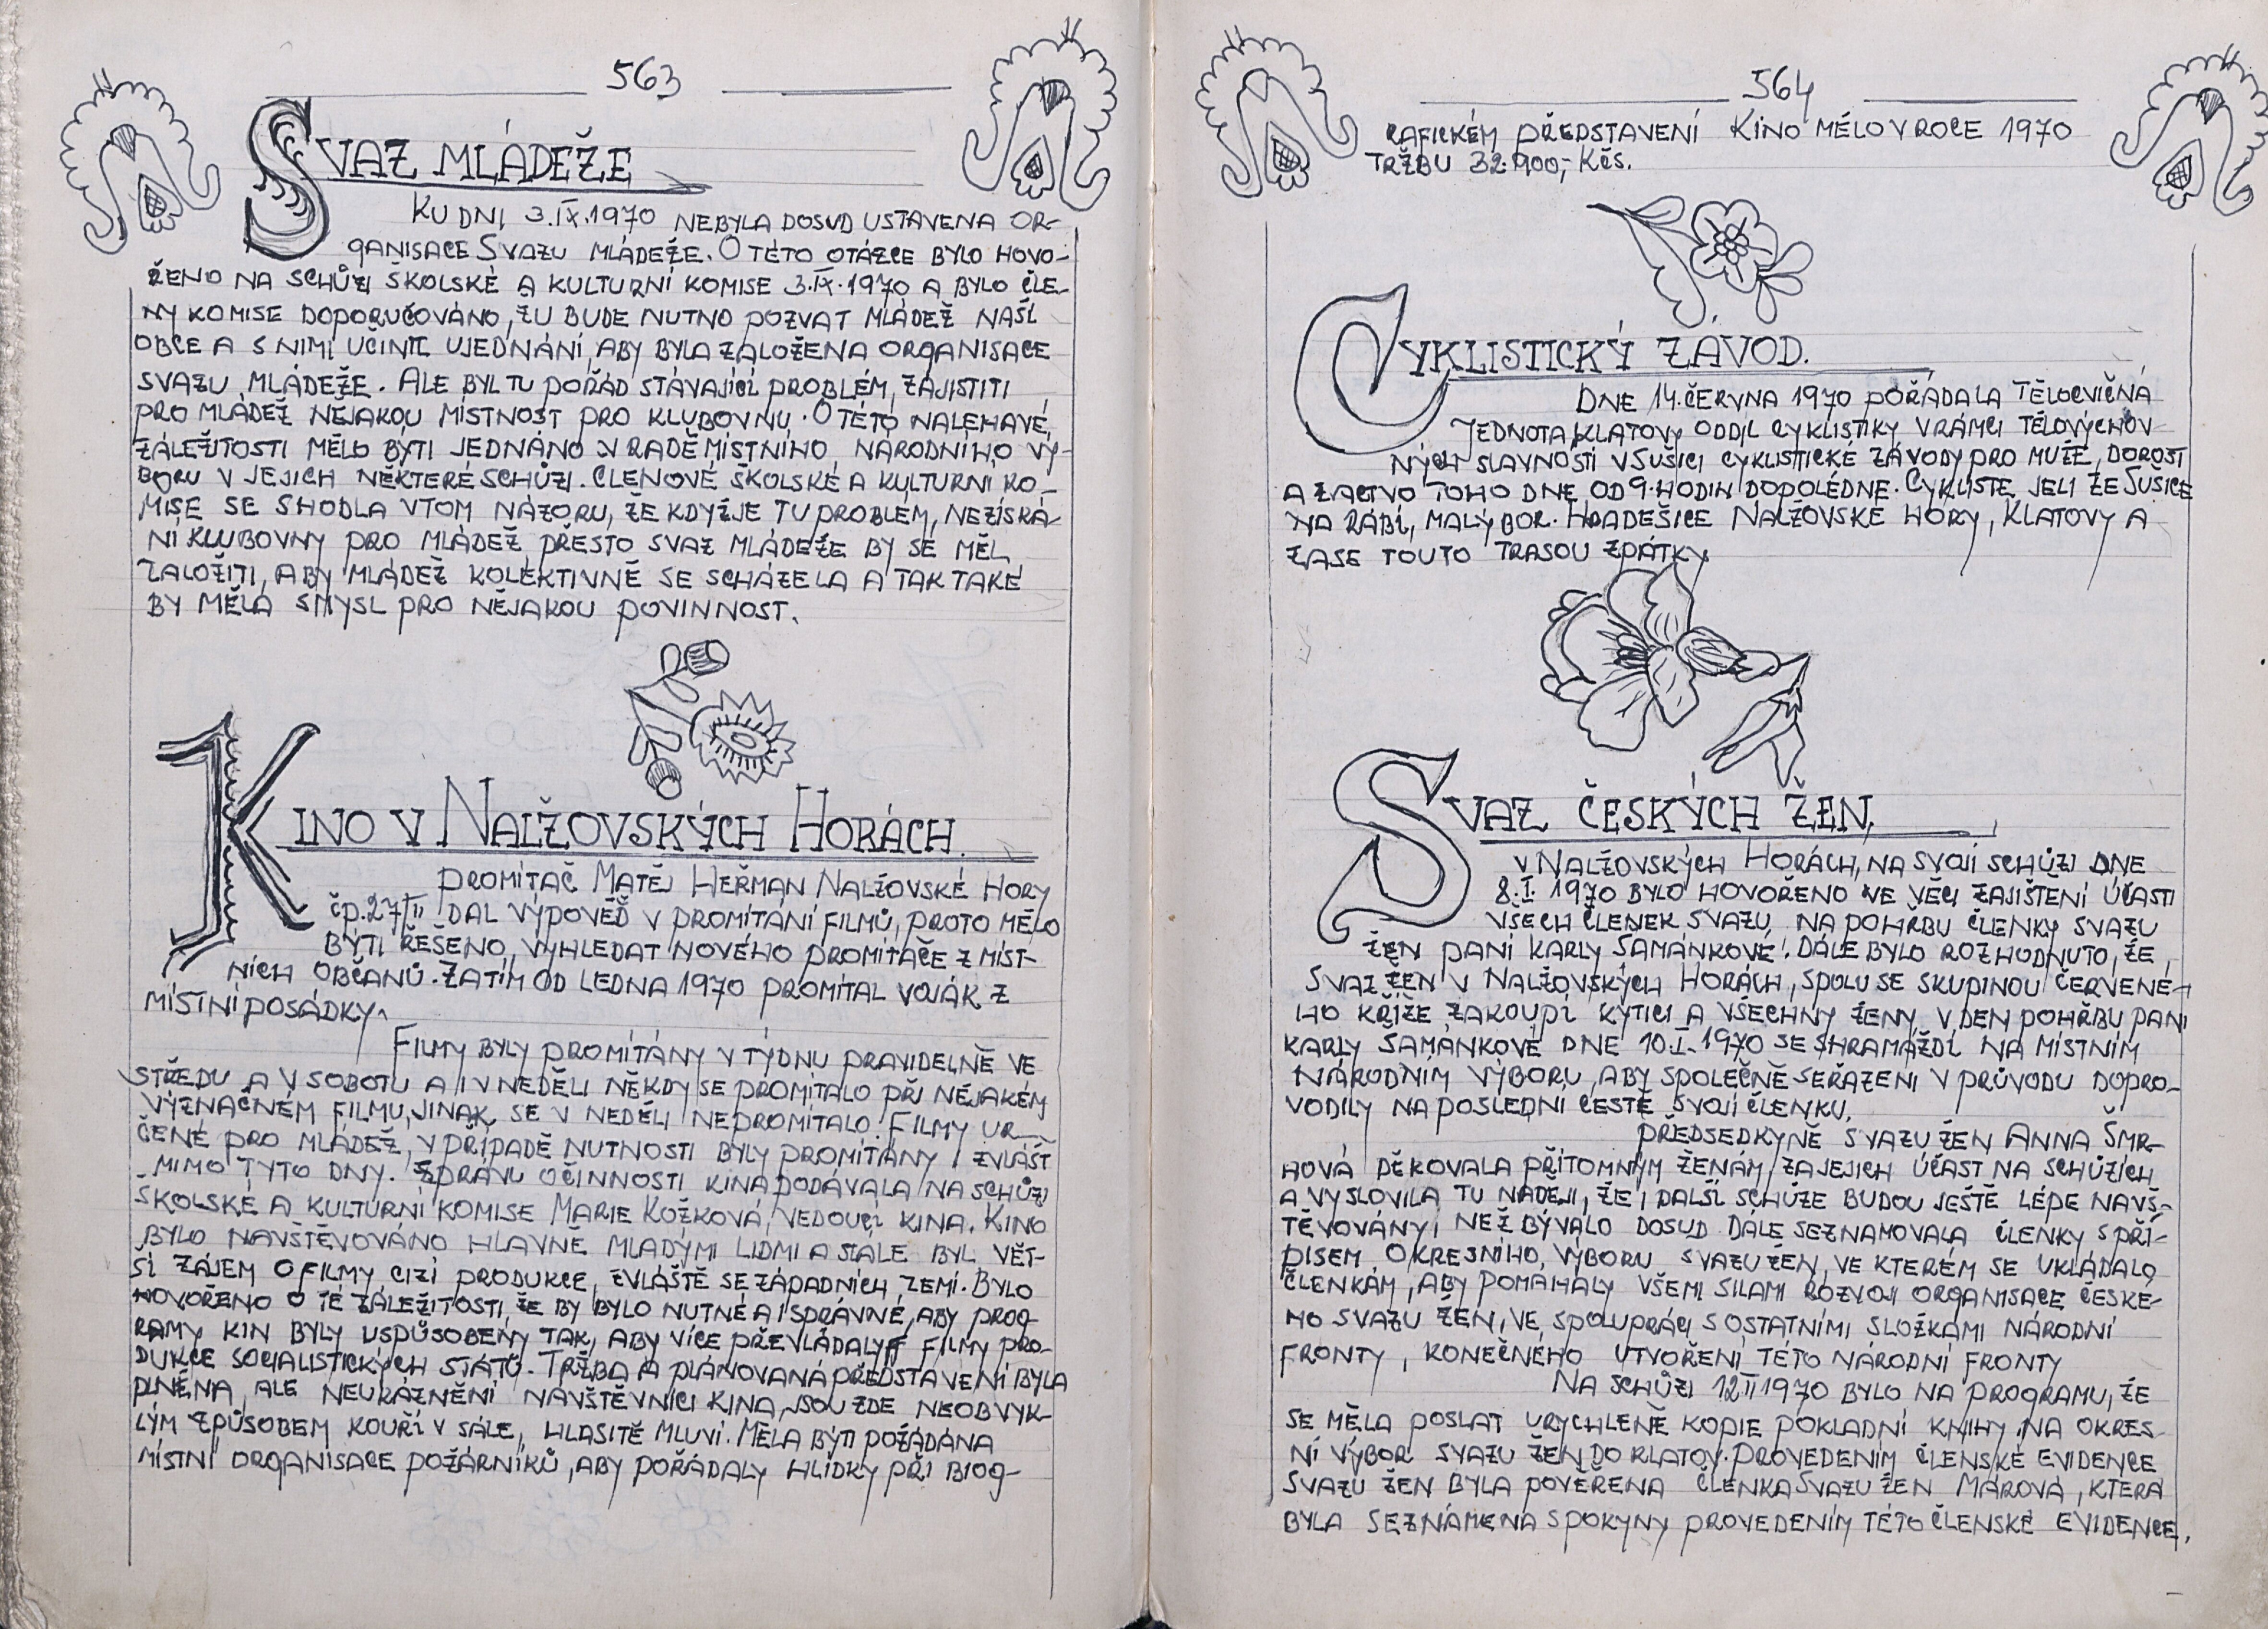 563
SVAZ MLÁDEŽE
KU DNI 3.IX.1970 NEBYLA DOSUD USTAVENA OR-
GANISACE SVAZU MLÁDEŽE. O TÉTO OTÁZCE BYLO HOVO-
ŽENO NA SCHŮZI ŠKOLSKÉ A KULTURNÍ KOMISE 3.IX.1970 A BYLO ČLE-
NY KOMISE DOPORUČOVÁNO, ŽU BUDE NUTNO POZVAT MLÁDEŽ NAŠÍ
OBCE A S NIMI UČINIT UJEDNÁNÍ, ABY BYLA ZALOŽENA ORGANISACE
SVAZU MLÁDEŽE. ALE BYL TU POŘÁD STÁVAJÍCÍ PROBLÉM, ZAJISTITI
PRO MLÁDEŽ NĚJAKOU MÍSTNOST PRO KLUBOVNU. O TÉTO NALEHAVÉ,
ZÁLEŽITOSTI MĚLO BÝTI JEDNÁNO V RADĚ MÍSTNÍHO NÁRODNÍHO VÝ-
BORU V JEJICH NĚKTERÉ SCHŮZI. ČLENOVÉ ŠKOLSKÉ A KULTURNÍ KO-
MISE SE SHODLA V TOM NÁZORU, ŽE KDYŽ JE TU PROBLÉM, NEZÍSKÁ-
NÍ KLUBOVNY PRO MLÁDEŽ, PŘESTO SVAZ MLÁDEŽE BY SE MĚL
ZALOŽITI, ABY MLÁDEŽ KOLEKTIVNĚ SE SCHÁZELA A TAK TAKÉ
BY MĚLA SMYSL PRO NĚJAKOU POVINNOST.
KINO V NALŽOVSKÝCH HORÁCH.
PROMÍTAČ MATĚJ HEŘMAN NALŽOVSKÉ HORY
ČP.27/II DAL VÝPOVĚĎ V PROMÍTÁNÍ FILMŮ, PROTO MĚLO
BÝTI ŘEŠENO, VYHLEDAT NOVÉHO PROMÍTAČE Z MÍST-
NÍCH OBČANŮ. ZATÍM OD LEDNA 1970 PROMÍTAL VOJÁK Z
MÍSTNÍ POSÁDKY.
FILMY BYLY PROMÍTÁNY V TÝDNU PRAVIDELNĚ VE
STŘEDU A V SOBOTU A I V NEDĚLI NĚKDY SE PROMÍTALO PŘI NĚJAKÉM
VÝZNAČNÉM FILMU, JINAK SE V NEDĚLI NEPROMÍTALO. FILMY UR
ČENÉ PRO MLÁDEŽ, V PŘÍPADĚ NUTNOSTI BYLY PROMÍTÁNY I ZVLÁŠŤ
MIMO TYTO DNY. ZPRÁVU O ČINNOSTI KINA PODÁVALA NA SCHŮZI
ŠKOLSKÉ A KULTURNÍ KOMISE MARIE KOŽKOVÁ, VEDOUCÍ KINA. KINO
BYLO NAVŠTĚVOVÁNO HLAVNĚ MLADÝMI LIDMI A STÁLE BYL VĚT-
ŠÍ ZÁJEM O FILMY CIZÍ PRODUKCE, ZVLÁŠTĚ SE ZÁPADNÍCH ZEMÍ. BYLO
HOVOŘENO O TÉ ZÁLEŽITOSTI, ŽE BY BYLO NUTNÉ A I SPRÁVNÉ, ABY PROG-
RAMY KIN BYLY USPŮSOBENY TAK, ABY VÍCE PŘEVLÁDALY FILMY PRO-
DUKCE SOCIALISTICKÝCH STÁTŮ. TRŽBA A PLÁNOVANÁ PŘEDSTAVENÍ BYLA
PLNĚNA, ALE NEUKÁZNĚNÍ NÁVŠTĚVNÍCI KINA, JSOU ZDE NEOBVYK-
LÝM ZPŮSOBEM KOUŘÍ V SÁLE, HLASITĚ MLUVÍ. MĚLA BÝTI POŽÁDÁNA
MÍSTNÍ ORGANISACE POŽÁRNÍKŮ, ABY POŘÁDALY HLÍDKY PŘI BIOG-
564
RAFICKÉM PŘEDSTAVENÍ KINO MĚLO V ROCE 1970
TRŽBU 32.900,- KČS.
CYKLISTICKÝ ZÁVOD.
DNE 14. ČERVNA 1970 POŘÁDALA TĚLOCVIČNÁ
JEDNOTA KLATOVY ODDÍL CYKLISTIKY V RÁMCI TĚLOVÝCHOV
NÝCH SLAVNOSTÍ V SUŠICI CYKLISTICKÉ ZÁVODY PRO MUŽE, DOROST
A ŽACTVO TOHO DNE OD 9. HODIN DOPOLEDNE. CYKLISTÉ JELI ZE SUŠICE
NA RÁBÍ, MALÝ BOR. HRADEŠICE NALŽOVSKÉ HORY, KLATOVY A
ZASE TOUTO TRASOU ZPÁTKY
SVAZ ČESKÝCH ŽEN.
V NALŽOVSKÝCH HORÁCH, NA SVOJÍ SCHŮZI DNE
8.I. 1970 BYLO HOVOŘENO VE VĚCI ZAJIŠTĚNÍ ÚČASTI
VŠECH ČLENEK SVAZU, NA POHŘBU ČLENKY SVAZU
ŽEN PANÍ KARLY ŠAMÁNKOVÉ. DÁLE BYLO ROZHODNUTO, ŽE
SVAZ ŽEN V NALŽOVSKÝCH HORÁCH, SPOLU SE SKUPINOU ČERVENÉ-
HO KŘÍŽE ZAKOUPÍ KYTICI A VŠECHNY ŽENY, V DEN POHŘBU PANÍ
KARLY ŠAMÁNKOVÉ DNE 10.I.1970 SE SHRAMÁŽDÍ NA MÍSTNÍM
NÁRODNÍM VÝBORU, ABY SPOLEČNĚ SEŘAZENI V PRŮVODU DOPRO-
VODILY NA POSLEDNÍ CESTĚ SVOJÍ ČLENKU.
PŘEDSEDKYNĚ SVAZU ŽEN ANNA ŠMR-
HOVÁ DĚKOVALA PŘÍTOMNÝM ŽENÁM ZA JEJICH ÚČAST NA SCHŮZÍCH
A VYSLOVILA TU NADĚJI, ŽE I DALŠÍ SCHŮZE BUDOU JEŠTĚ LÉPE NAVŠ-
TĚVOVÁNY, NEŽ BÝVALO DOSUD. DÁLE SEZNAMOVALA ČLENKY S PŘÍ-
PISEM OKRESNÍHO, VÝBORU SVAZU ŽEN, VE KTERÉM SE UKLÁDALO
ČLENKÁM, ABY POMAHALY VŠEMI SILAMI ROZVOJI ORGANISACE ČESKÉ-
HO SVAZU ŽEN, VE SPOLUPRÁCI S OSTATNÍMI SLOŽKAMI NÁRODNÍ
FRONTY, KONEČNÉHO UTVOŘENÍ TÉTO NÁRODNÍ FRONTY
NA SCHŮZI 12.II 1970 BYLO NA PROGRAMU, ŽE
SE MĚLA POSLAT URYCHLENĚ KOPIE POKLADNÍ KNIHY, NA OKRES
NÍ VÝBOR SVAZU ŽEN DO KLATOV. PROVEDENÍM ČLENSKÉ EVIDENCE
SVAZU ŽEN BYLA POVĚŘENA ČLENKA SVAZU ŽEN MÁROVÁ, KTERÁ
BYLA SEZNÁMENA S POKYNY PROVEDENÍM TÉTO ČLENSKÉ EVIDENCE.